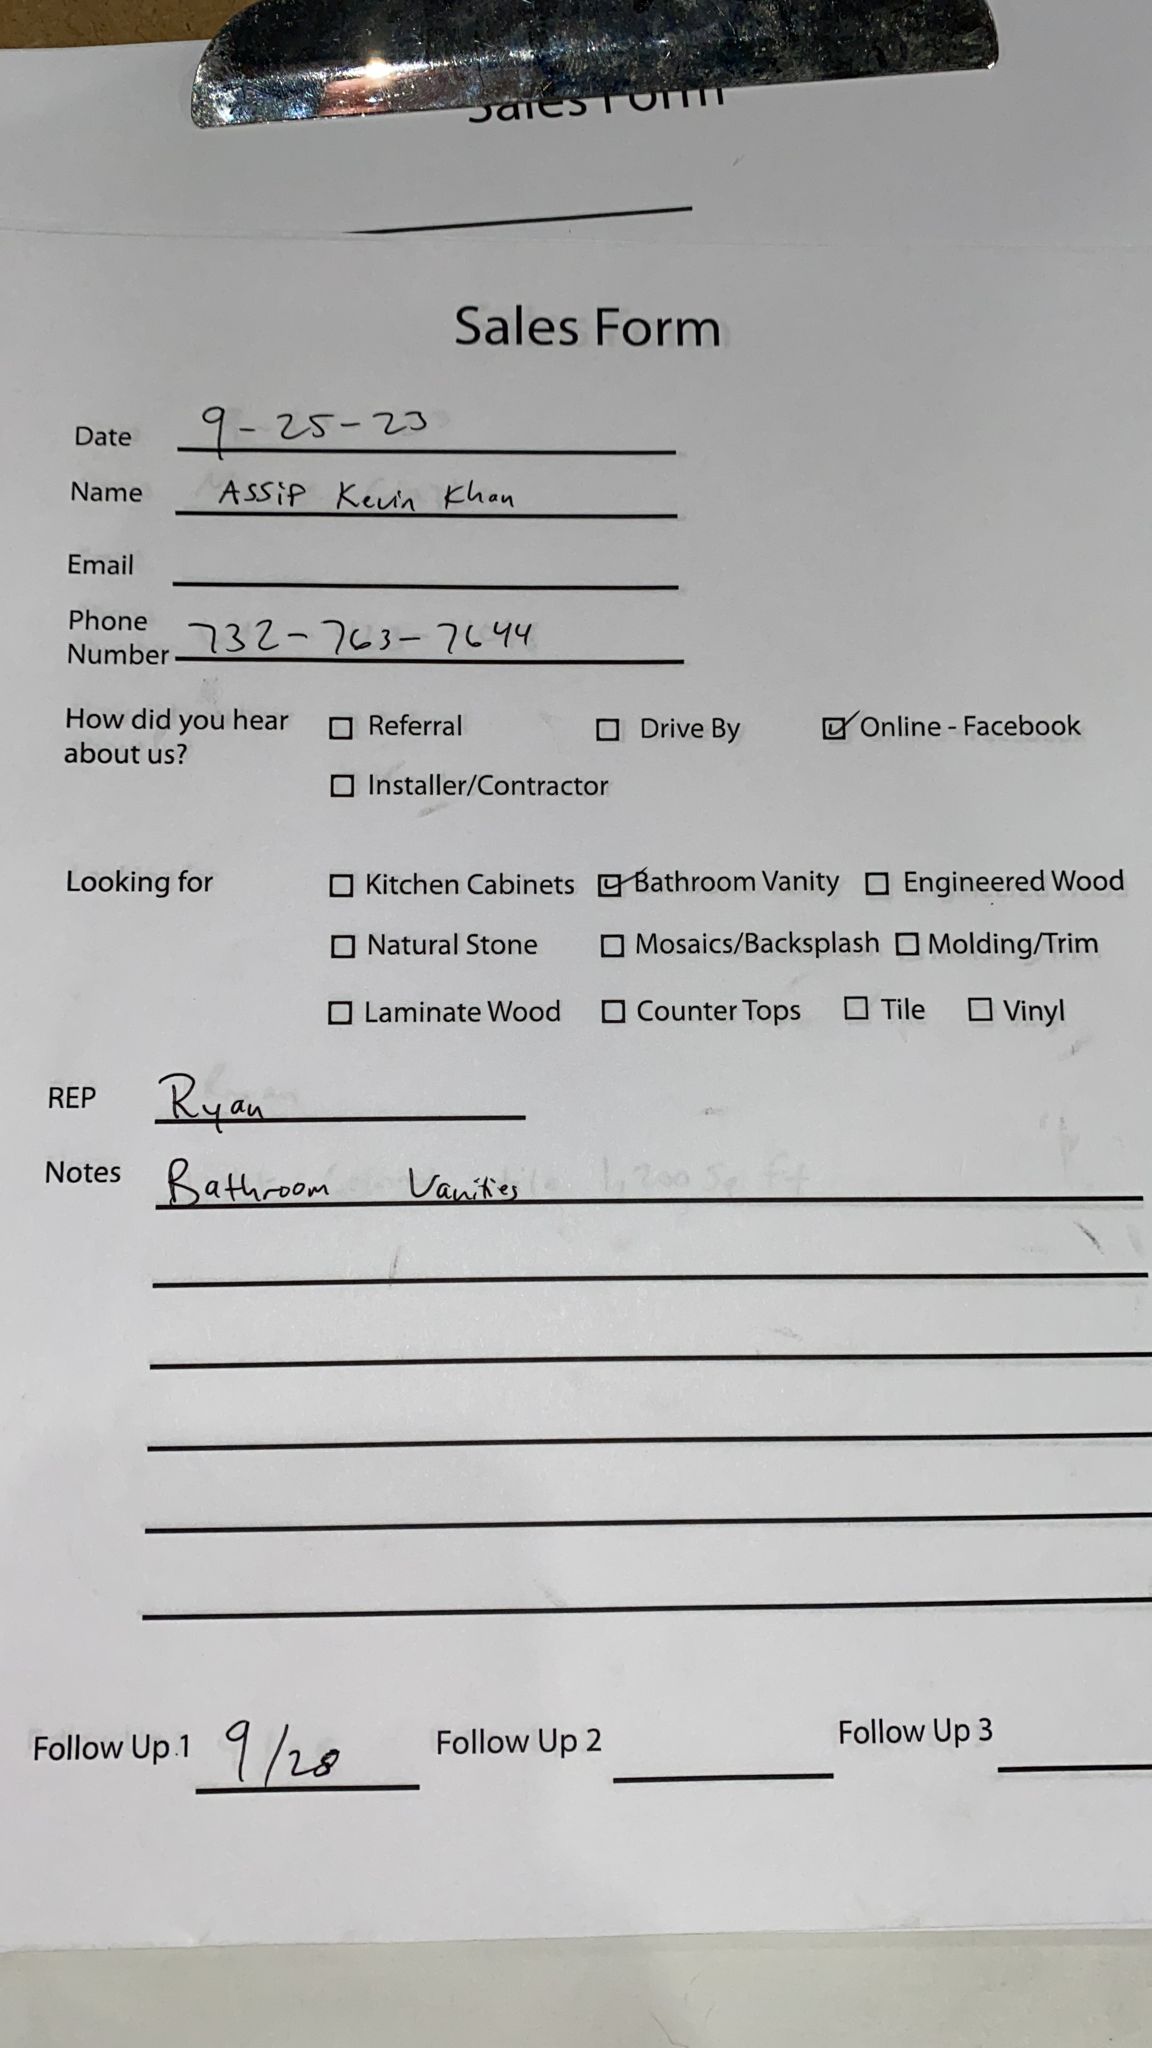 Sales Form
Sales Form
Date 9-25-23
Name ASSiP Kevin Khan
Email
Phone
Number 732-763-7644
How did you hear
about us?
Referral Drive By Online - Facebook
Installer/Contractor
Looking for Kitchen Cabinets Bathroom Vanity Engineered Wood
Natural Stone Mosaics/Backsplash Molding/Trim
Laminate Wood Counter Tops Tile Vinyl
REP Ryan
Notes Bathroom Vanities 1,200 Sq ft
Follow Up 1 9/28 Follow Up 2 Follow Up 3